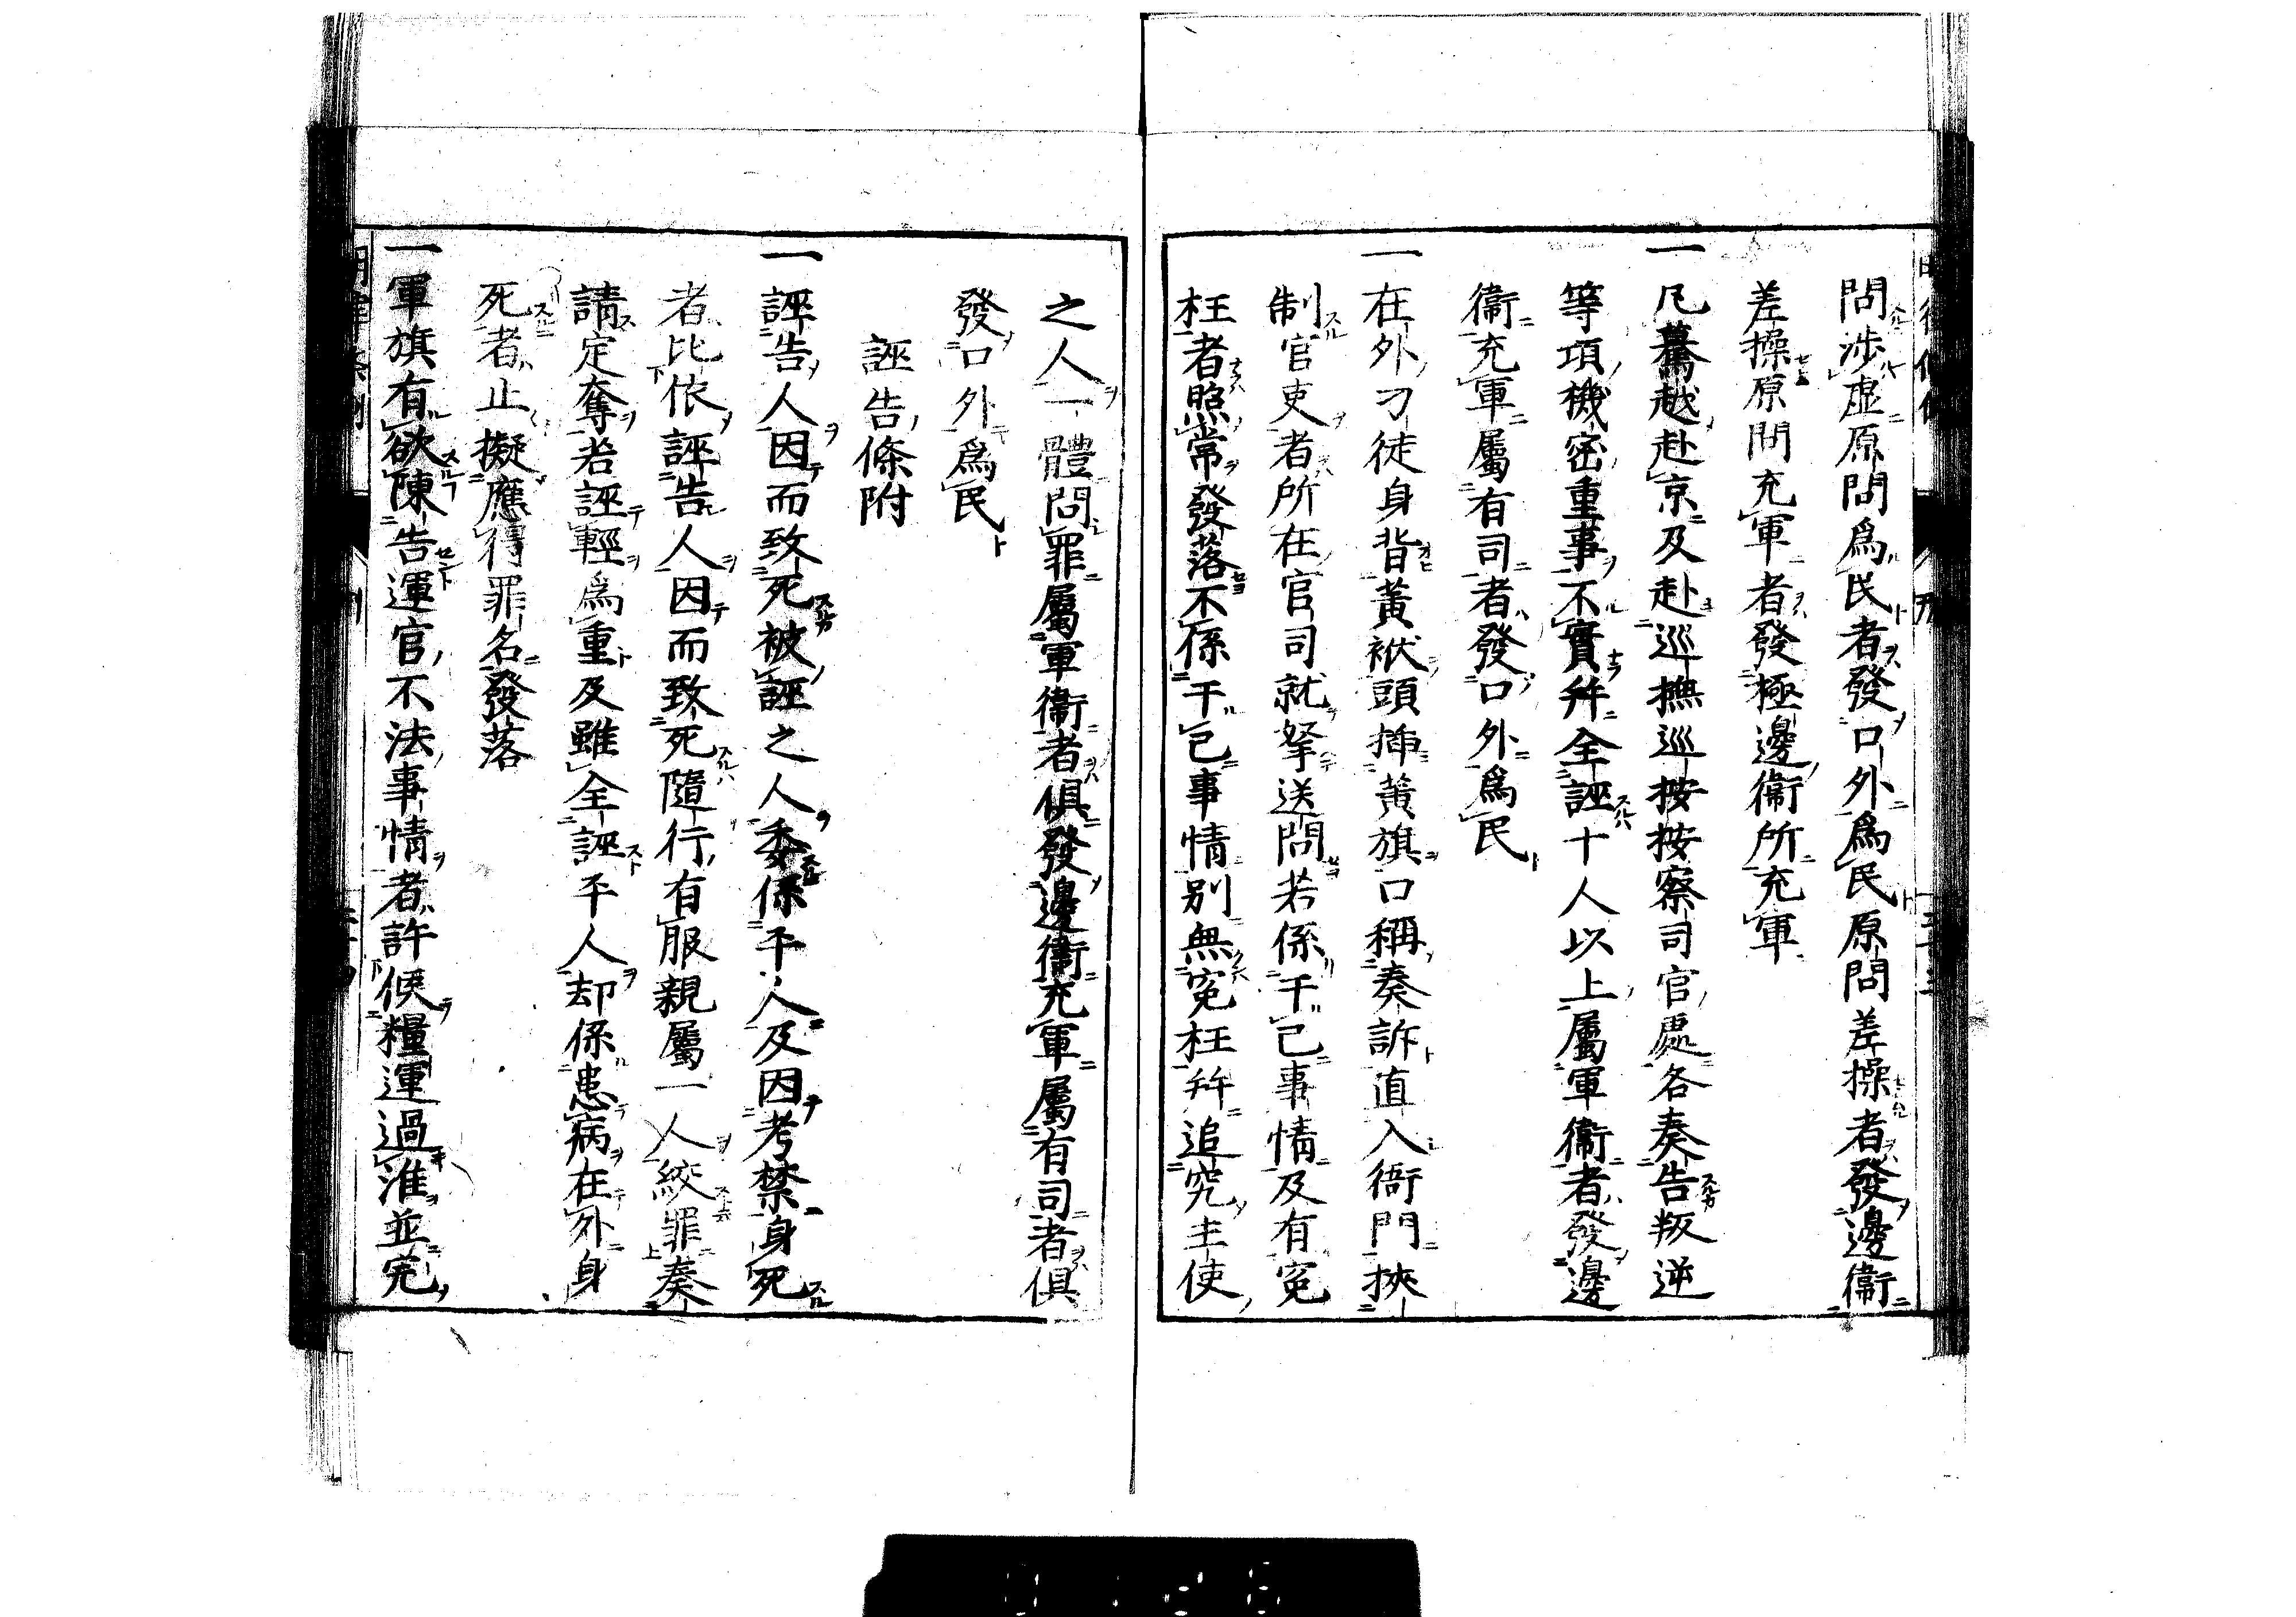 問涉虛原問爲民者發口外爲民原問差操者發邊衞
差操原問充軍者發極邊衞所充軍
一凡驀越赴京及赴巡撫巡按按察司官處各奏告叛逆
等項機密重事不實幷全誣十人以上屬軍衞者發邊
衞充軍屬有司者發口外爲民
一在外刁徒身背黃袱頭揷黃旗口稱奏訴直入衙門挾
制官吏者所在官司就拏送問若係干己事情及有冤
枉者照常發落不係干己事情別無冤枉幷追究主使
之人一體問罪屬軍衞者俱發邊衞充軍屬有司者俱
發口外爲民
誣告條附
一誣告人因而致死被誣之人委係平人及因考禁身死
者比依誣告人因而致死隨行有服親屬一人絞罪奏
請定奪若誣輕爲重及雖全誣平人却係患病在外身
死者止擬應得罪名發落
一軍旗有欲陳告運官不法事情者許候糧運過淮並完